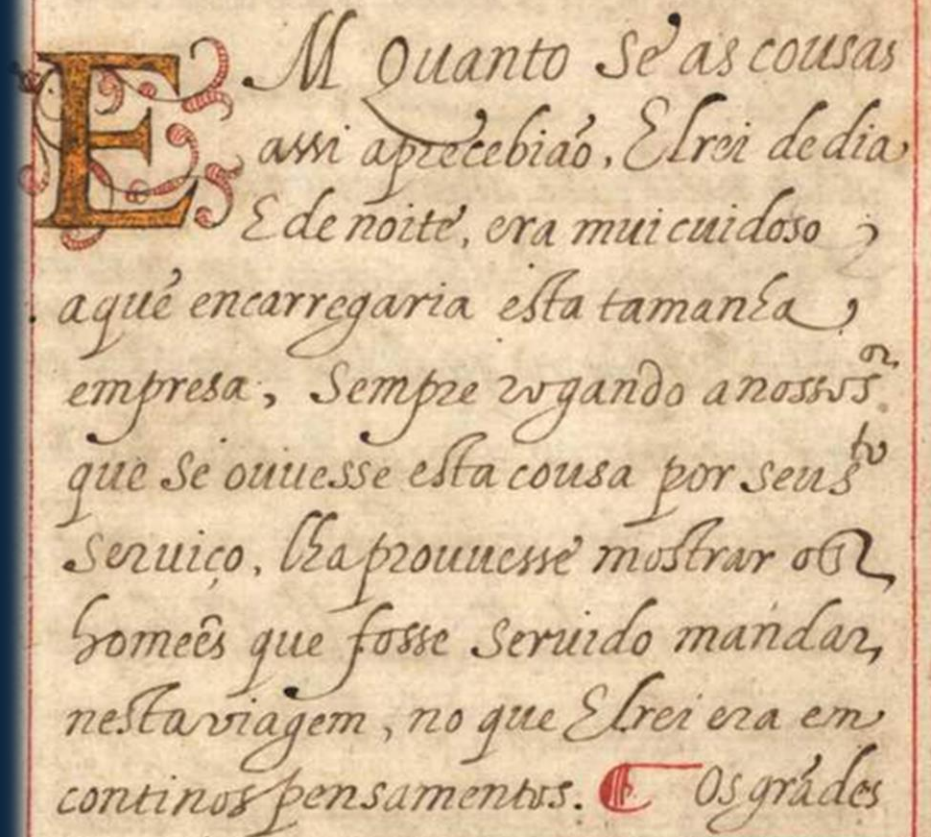 EM Quanto se as cousas
assi aprecebiaõ, Elrei de dia
E de noite, era mui cuidoso
a quẽ encarregaria esta tamanha
empresa, Sempre rogando a nosso sor
que se ouuesse esta cousa por seu sto
Seruiço, lha prouuesse mostrar os
homeẽs que fosse seruido mandar,
nesta viagem, no que Elrei era em
continos pensamentos. ¶ Os grãdes